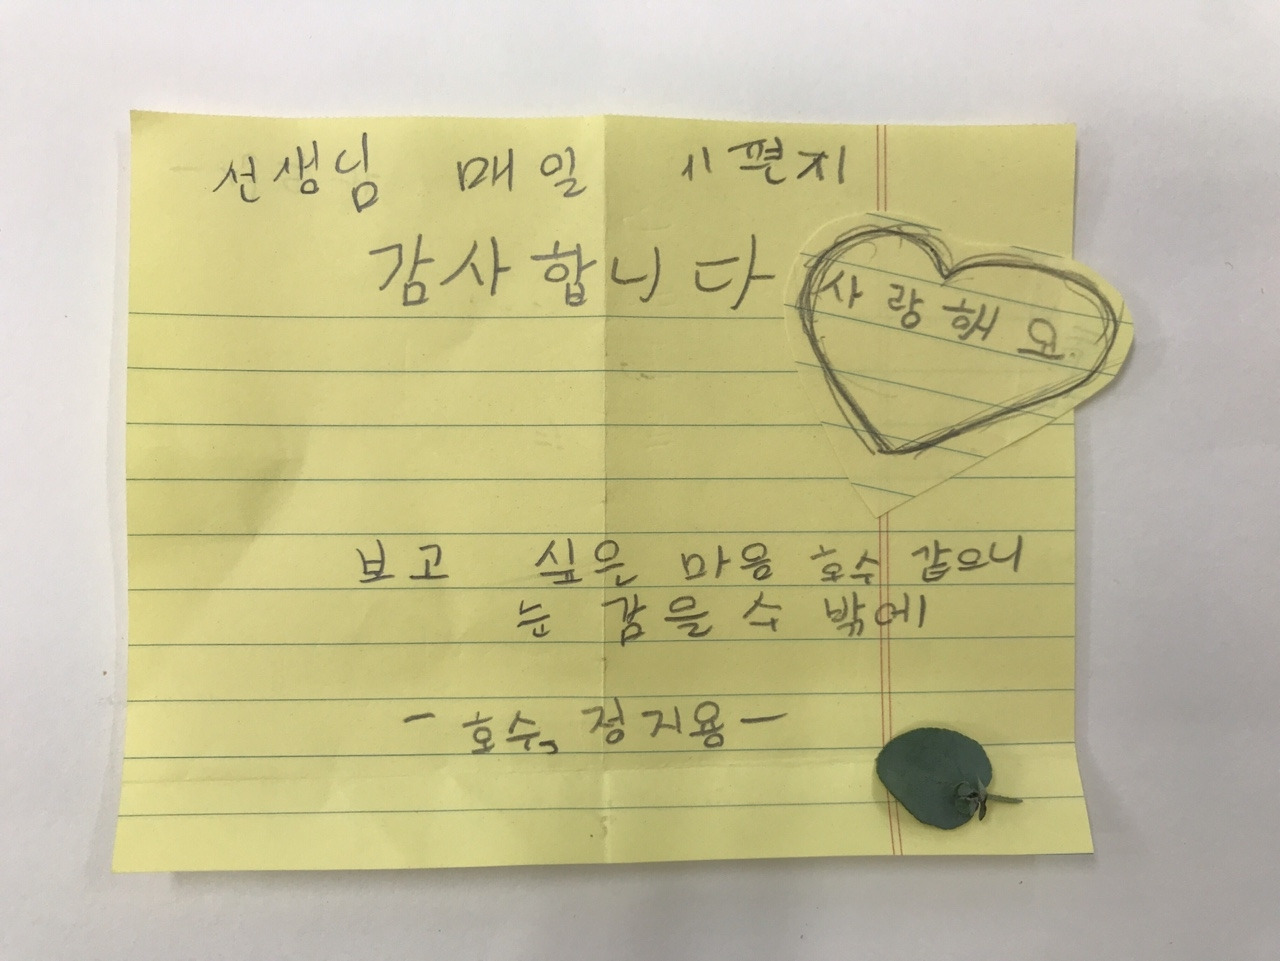 선생님 매일 시편지
감사합니다
사랑해요
보고 싶은 마음 호수 같으니
눈 감을 수 밖에
- 호수, 정지용 -